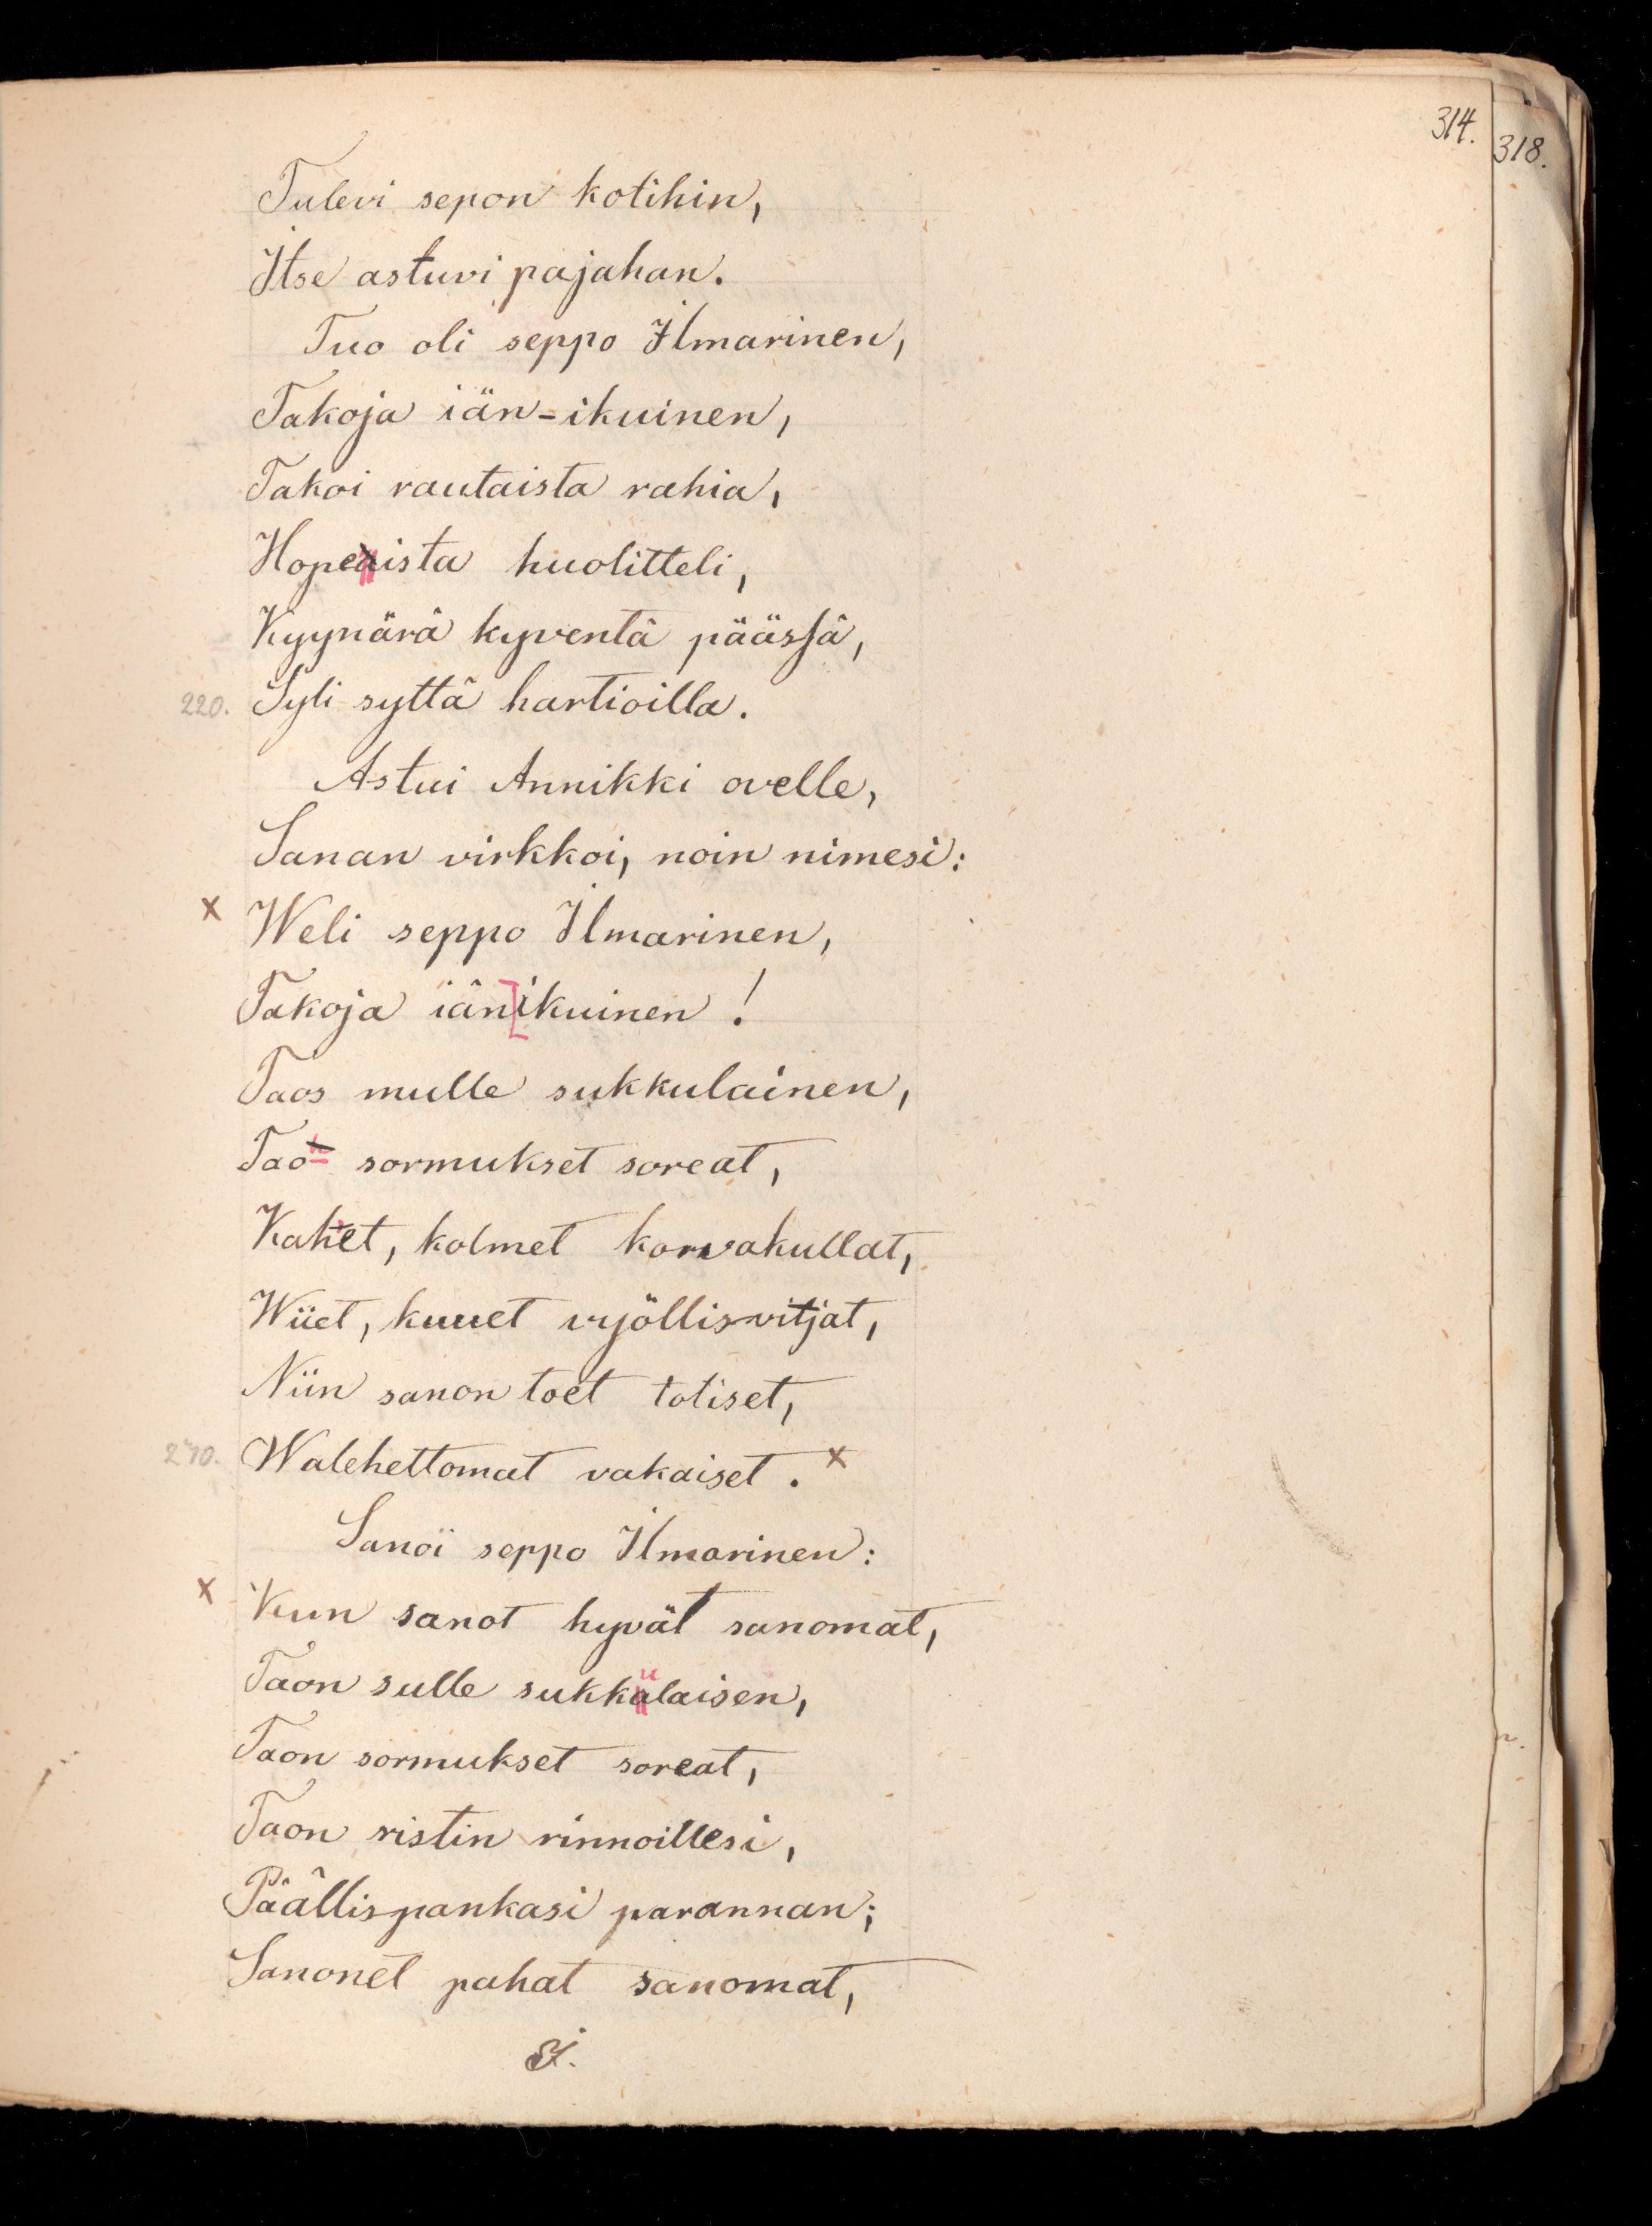 314.
318.
Tulevi sepon kotihin,
Itse astuvi pajahan.
Tuo oli seppo Ilmarinen,
Takoja iän-ikuinen,
Takoi rautaista rahia,
Hopeaista huolitteli,
Kyynärä kyventä päässä,
220. Syli syttä hartioilla.
Astui Annikki ovelle,
Sanan virkkoi, noin nimesi:
x Weli seppo Ilmarinen,
Takoja iänikuinen!
Taos mulle sukkulainen,
Tao sormukset soreat,
Kahet, kolmet korvakullat,
Wiiet, kuuet vyöllisvitjat,
Niin sanon toet totiset,
Walehettomat vakaiset. x
Sanoi seppo Ilmarinen:
x Kun sanot hyvät sanomat,
Taon sulle sukkulaisen,
Taon sormukset soreat,
Taon ristin rinnoillesi,
Päällispankasi parannan;
Sanonet pahat sanomat,